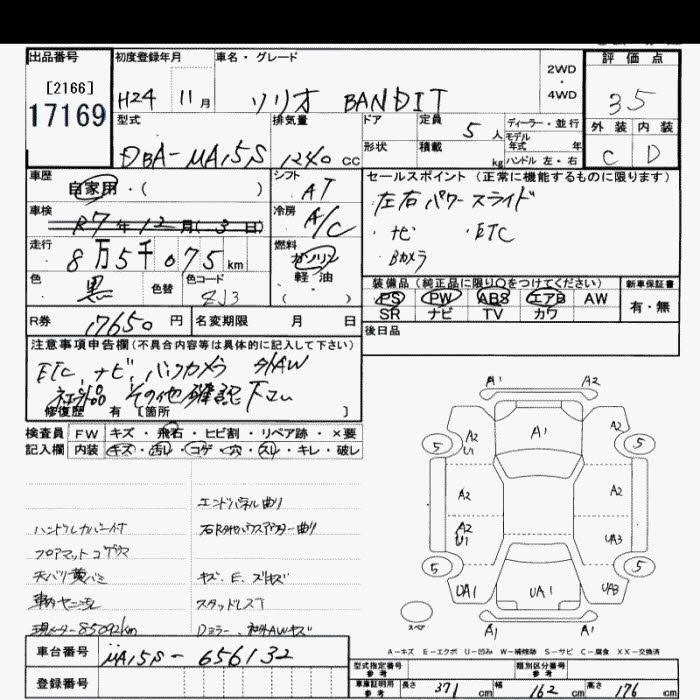 出品番号
[2166]
17169
初度登録年月
H24 11月
車名・グレード
ソリオ BANDIT
2WD
・
4WD
評価点
35
外装 内装
C D
型式
DBA-MA15S
排気量
1240 cc
ドア
形状
定員 5人
積載 kg
ディーラー・並行
モデル
年式 年
ハンドル 左・右
車歴
自家用・( )
シフト
AT
車検
R7年12月(3日)
冷房
A/C
走行
8万5千075km
燃料
ガソリン
軽・油
( )
色
黒
色替
色コード
ZJ3
セールスポイント(正常に機能するものに限ります)
左右パワースライド
・ナビ ・ETC
・Bカメラ
装備品(純正品に限り○をつけてください)
PS PW ABS エアB AW
SR ナビ TV カワ
新車保証書
有・無
後日品
R券 17650円
名変期限 月 日
注意事項申告欄(不具合内容等は具体的に記入して下さい)
ETC、ナビ、バックカメラ 外AW
社外品 その他確認下さい
修復歴 有 〔箇所 〕
検査員 FW キズ・飛石・ヒビ割・リペア跡・×要
記入欄 内装 キズ・汚レ・コゲ・穴・スレ・キレ・破レ
エンドパネル曲り
ハンドルカバー付
フロアマットコゲ穴
天バリ黄バミ
キズ、E、ズリキズ
車内ヤニ汚
スタッドレスT
現メーター85092km
Dミラー、社外AWキズ
車台番号
MA15S-656132
登録番号
A1 A2
5 A2 U1 A1 A2 5
A2 A2
A2 U1 UA3
5 UA1 UA1 UA3 5
スペア
A1 A1
A-キズ E-エクボ U-凹み W-補修跡 S-サビ C-腐食 XX-交換済
型式指定番号
参考
類別区分番号
参考
車庫証明用
参考
長さ 371 cm 幅 162 cm 高さ 176 cm